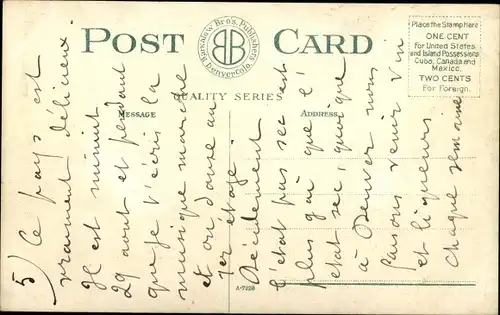 POST CARD
Bamkalow Bro's. Publishers
Denver, Colo.
BB
QUALITY SERIES
MESSAGE
ADDRESS
Place the Stamp Here
ONE CENT
For United States
and Island Possessions
Cuba, Canada and
Mexico.
TWO CENTS
For Foreign.
5) Ce pays est
vraiment délicieux.
Il est minuit
29 aout et pendant
que je t'écris la
musique marche
et on danse au
1er étage.
Décidement
l'état pas sec est
plus gai que l'
etat sec, quoique
à Denver nous
faisons venir vin
et liqueurs
chaque semaine
A-7228